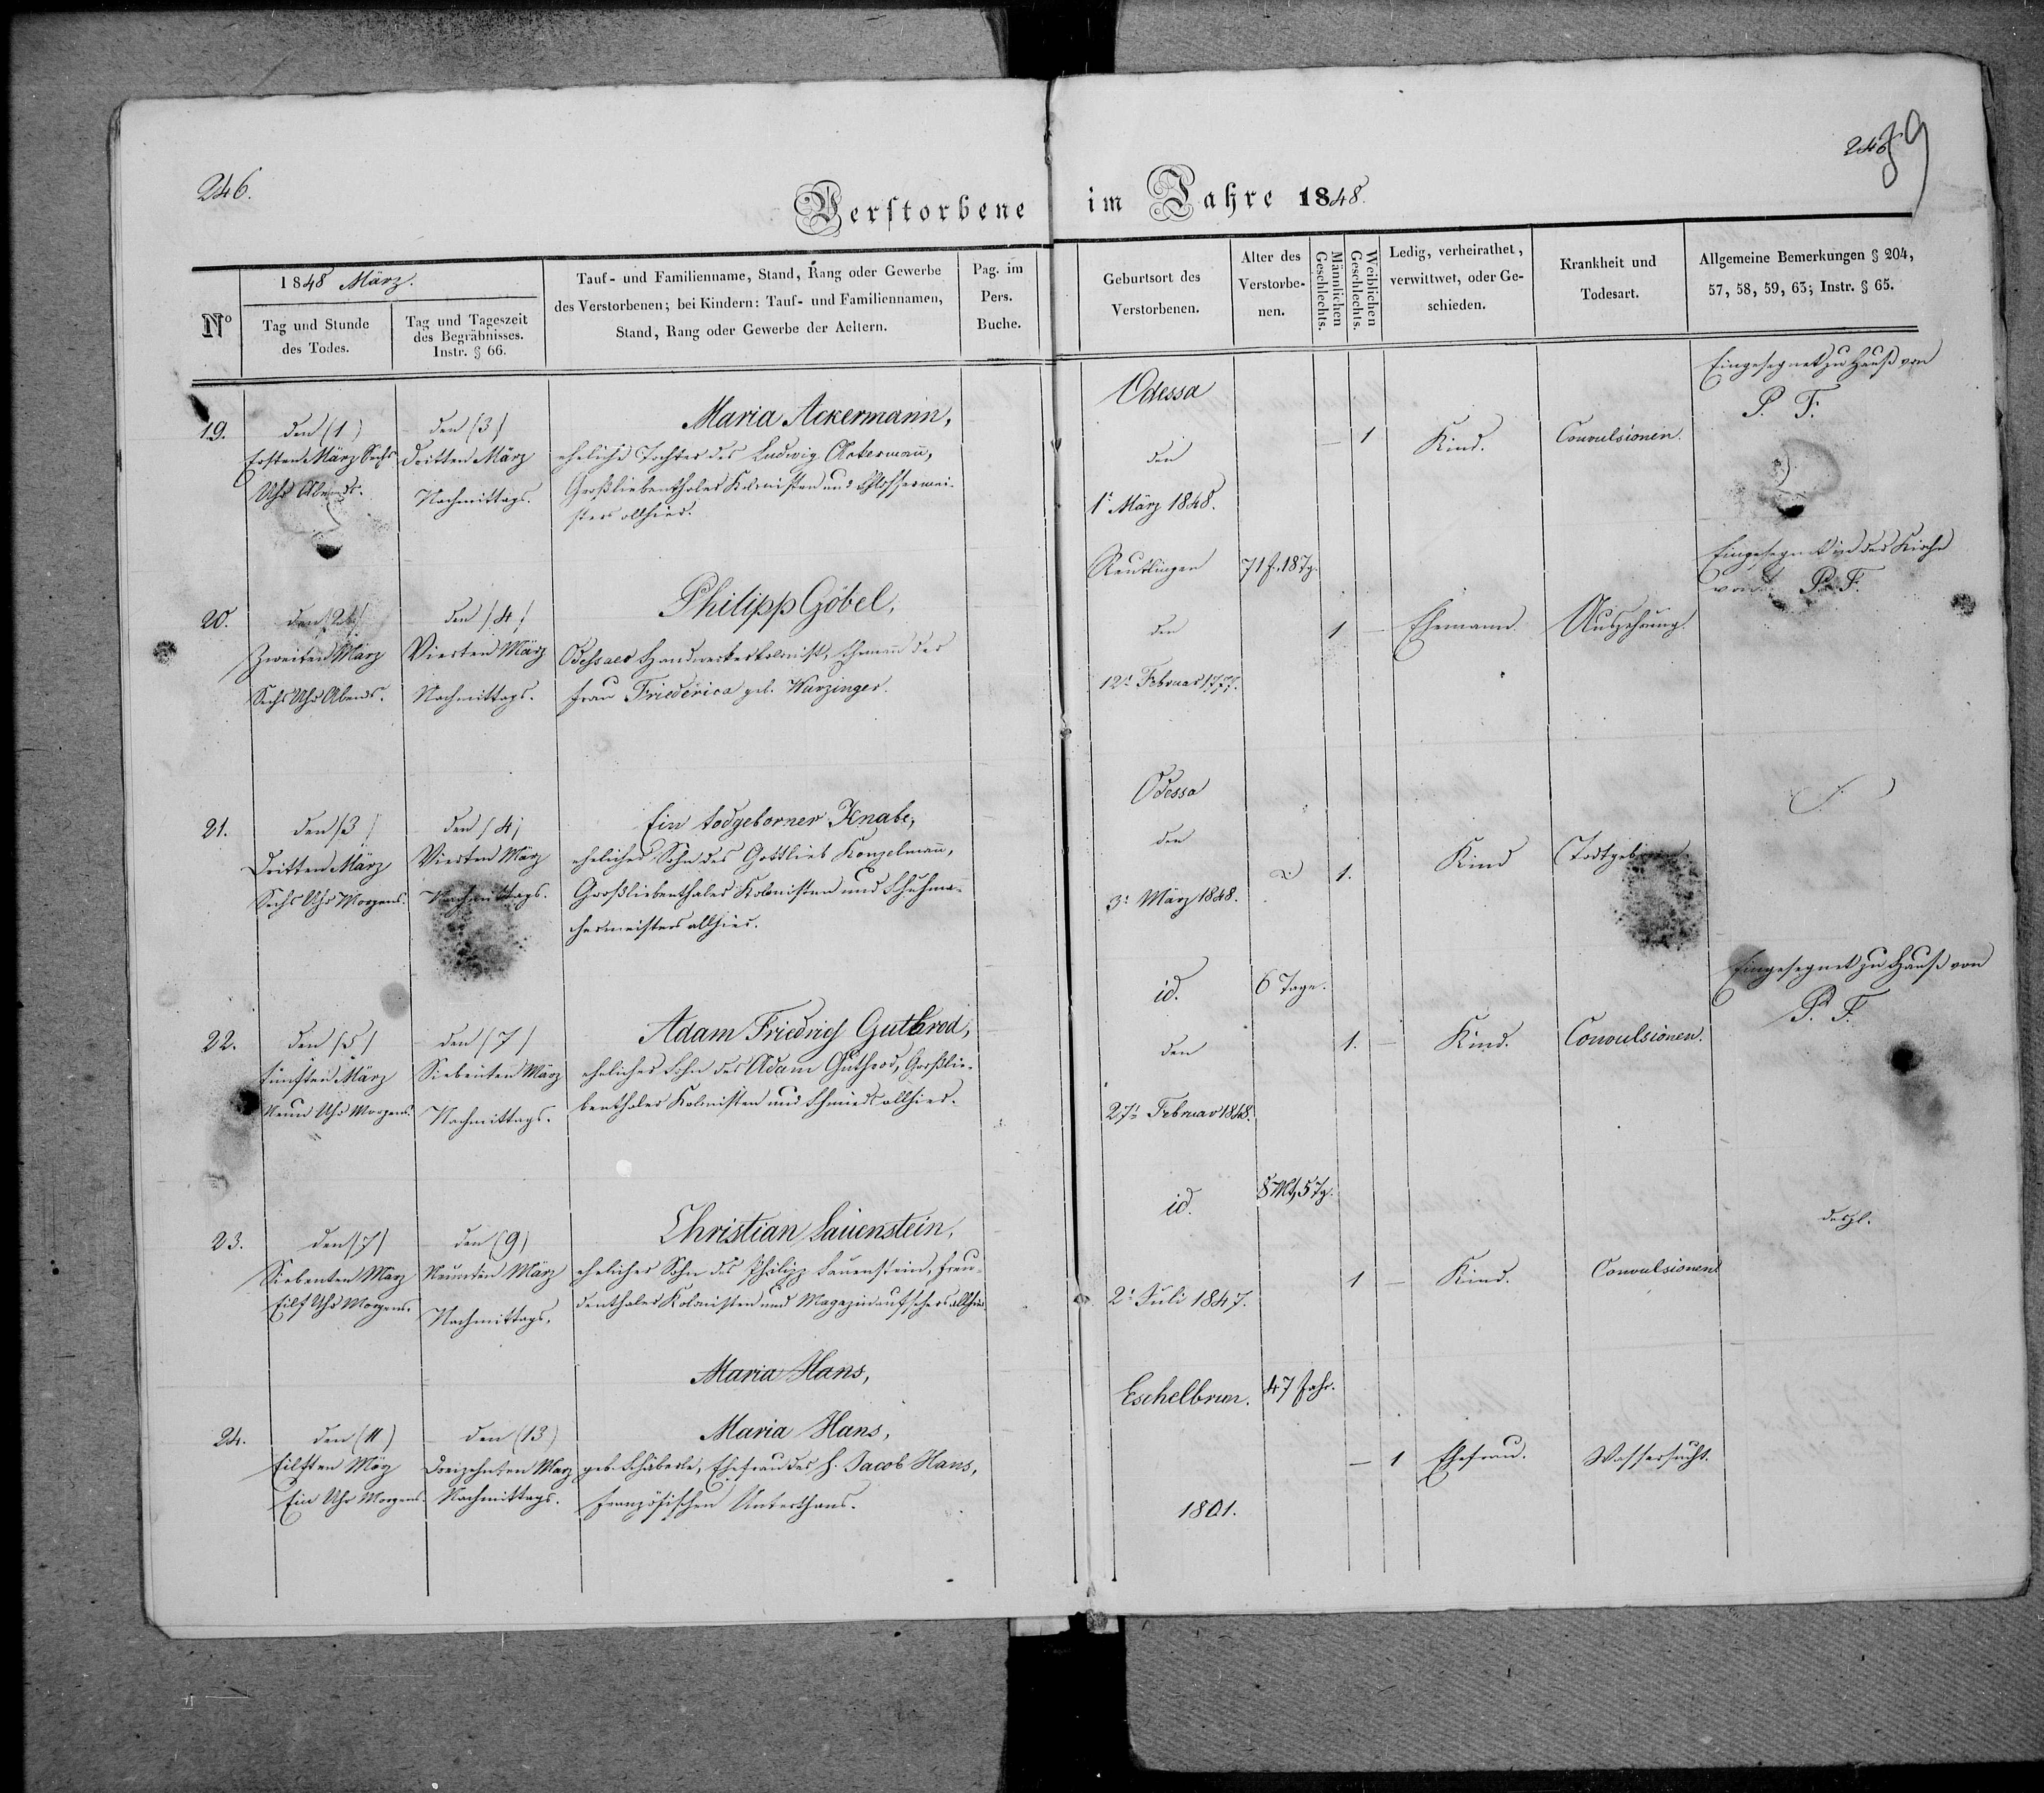 246.
246
89
Verstorbene im Jahre 1848.
No
1848 März.
Tag und Stunde
des Todes.
Tag und Tageszeit
des Begräbnisses.
Instr. § 66.
Tauf- und Familienname, Stand, Rang oder Gewerbe
des Verstorbenen; bei Kindern: Tauf- und Familiennamen,
Stand, Rang oder Gewerbe der Aeltern.
Pag. im
Pers.
Buche.
Geburtsort des
Verstorbenen.
Alter des
Verstorbe-
nen.
Männlichen
Geschlechts.
Weiblichen
Geschlechts.
Ledig, verheirathet,
verwittwet, oder Ge-
schieden.
Krankheit und
Todesart.
Allgemeine Bemerkungen § 204,
57, 58, 59, 63; Instr. § 65.
19.
den (1)
Ersten März Sechs
Uhr Abends.
den (3)
Dritten März
Nachmittags.
Maria Ackermann,
eheliche Tochter des Ludwig Ackermañ,
Großliebenthaler Kolonisten und Schlossermei-
sters allhier.
Odessa
den
1t März 1848.
— 1
Kind.
Convulsionen.
Eingesegnet zu Hauß von
P. F.
20.
den (2)
Zweiten März
Sechs Uhr Abends.
den (4)
Vierten März
Nachmittags.
Philipp Göbel,
Odessaer Handwerkerkolonist, Ehemañ der
Frau Friederica geb. Warzinger.
Reutlingen
den
12t Februar 1777.
71 J. 18 Tg.
1 —
Ehemann.
Auszehrung.
Eingesegnet in der Kirche
von P. F.
21.
den (3)
Dritten März
Sechs Uhr Morgens.
den (4)
Vierten März
Nachmittags.
Ein todgeborner Knabe,
ehelicher Sohn des Gottlieb Konzelmañ,
Großliebenthaler Kolonisten und Schuhma-
chermeisters allhier.
Odessa
den
3t März 1848.
1.
Kind
Todtgeboren.
22.
den (5)
Fünften März
Neun Uhr Morgens.
den (7)
Siebenten März
Nachmittags.
Adam Friedrich Guthrod,
ehelicher Sohn des Adam Guthrod, Großlie-
benthaler Kolonisten und Schmieds allhier.
id.
den
27t Februar 1848.
6 Tage.
1. —
Kind.
Convulsionen.
Eingesegnet zu Hauß von
P. F.
23.
den (7)
Siebenten März
Eilf Uhr Morgens.
den (9)
Neunten März
Nachmittags.
Christian Lauenstein,
ehelicher Sohn des Philipp Lauenstein, Freu-
denthaler Kolonisten und Magazinaufsehers allhier.
id.
2t Juli 1847.
8 Mt, 5 Tg.
1 —
Kind.
Convulsionen
desgl.
Maria Hans,
24.
den (11)
Eilften März
Ein Uhr Morgens.
den (13)
Dreizehnten März
Nachmittags.
Maria Hans,
geb. Schäberle, Ehefrau des H. Jacob Hans,
französischen Unterthans.
Eschelbrun.
1801.
47 Jahr.
— 1
Ehefrau.
Wassersucht.